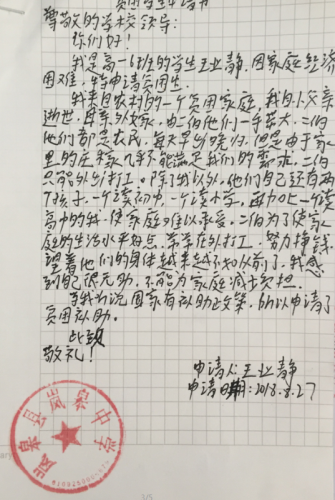 贫困学生申请书
尊敬的学校领导:
你们好!
我是高一6班的学生王业静,因家庭经济
困难,特申请贫困生。
我来自农村的一个贫困家庭,我自小父亲
逝世,母亲外嫁,由二伯他们一手带大,二伯
他们都是农民,每天早出晚归,但是由于家
里的庄稼仍不能满足我们的需求,二伯
只能外出打工。除了我以外,他们自己还有两
个孩子,一个读初中,一个读小学,再加上一个读
高中的我,使家庭难以承受,二伯为了使家
庭的生活水平好点,常常在外打工,努力挣钱
望着他们的身体越来越不如从前了,我感
到自己很无助,不能为家庭减轻负担。
当我听说国家有补助政策,所以申请了
贫困补助。
此致
敬礼!
申请人:王业静
申请日期:2018.8.27
岚皋县岚皋中学